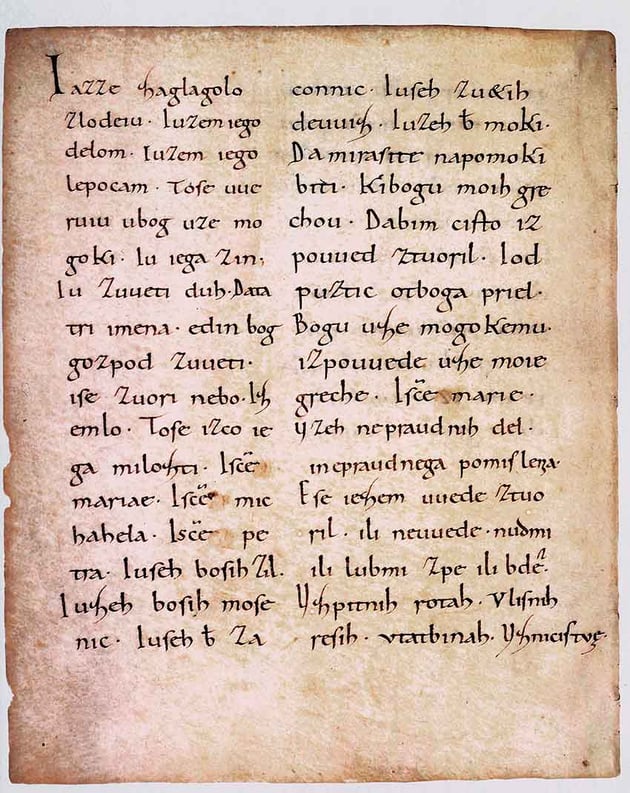 Iazze zaglagolo
zlodeiu· Iuzem iego
delom· Iuzem iego
lepocam· Tose uue
ruiu ubog uze mo
goki· Iu iega zin;
Iu zuueti duh· Data
tri imena· edin bog
gozpod zuueti·
ise zuori nebo· Iz
emlo· Tose izco ie
ga milozti· Isc̄e
mariae· Isc̄e mic
hahela· Isc̄e pe
tra· Iuseh bosih zil·
Iuzeh bosih mose
nic· Iuseh b̄ za
connic· Iuseh zu&ih
deuuiz· Iuzeh b̄ moki·
Da mirasite napomoki
biti· Kibogu moih gre
chou· Dabim cisto iz
pouued ztuoril· Iod
puztic otboga priel·
Bogu uze mogokemu·
izpouuede uze moie
greche· Isc̄e marie·
uzeh nepraudnih del·
inepraudnega pomislena·
Ese iezem uuede ztuo
ril· ili neuuede· nudmi
ili lubmi zpe ili bde·
Uzpitnih rotah· Vlisnih
resih· vtatbinah· Uznicistve·